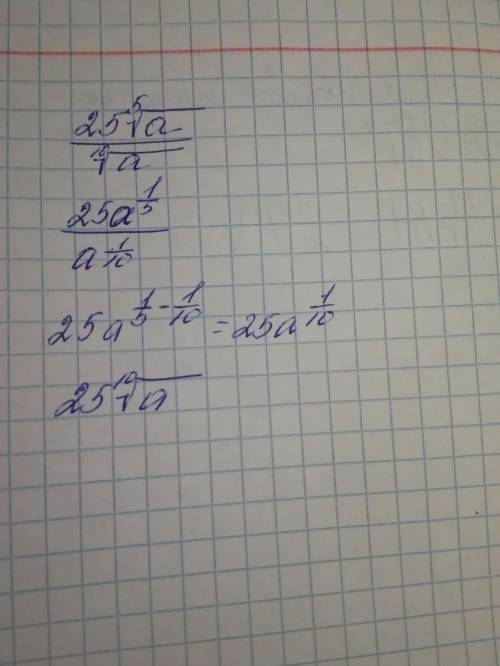 25⁵√a
¹⁰√a
25a^1/5
a^1/10
25a^1/5-1/10=25a^1/10
25¹⁰√a